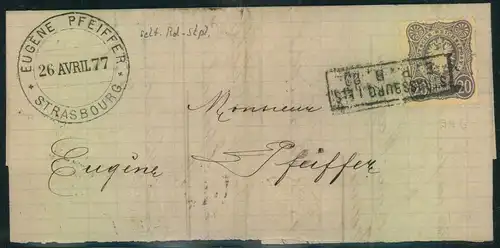 EUGÈNE PFEIFFER
26 AVRIL 77
STRASBOURG
selt. Rd-Stpl.
STRASSBURG I. ELS.
20
Monsieur
Eugène Pfeiffer